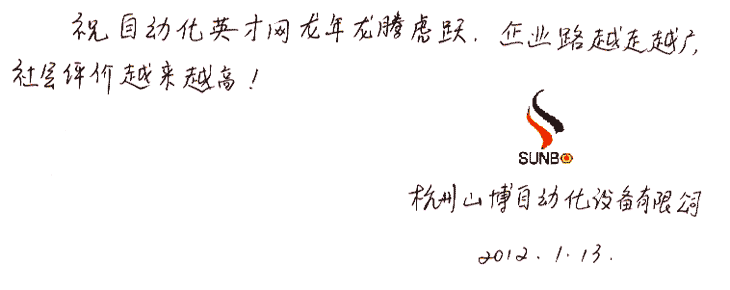 祝自动化英才网龙年龙腾虎跃．企业路越走越广，
社会评价越来越高！
SUNBO
杭州山博自动化设备有限公司
2012．1．13．